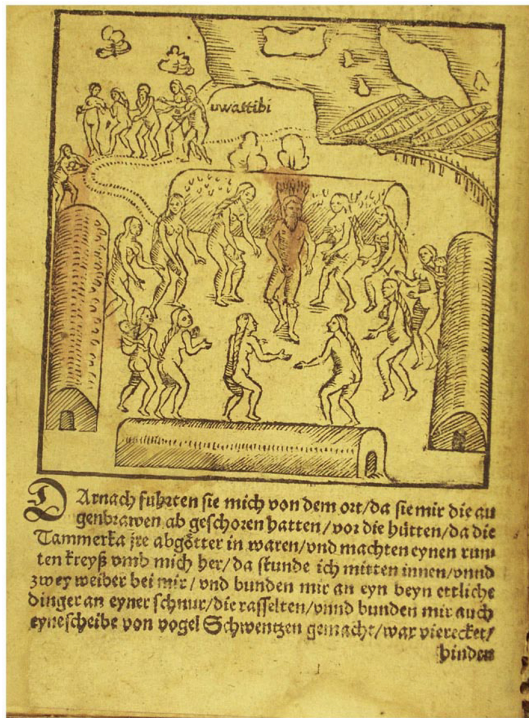 uwattibi
DArnach fuhrten sie mich von dem ort/da sie mir die au
genbrawen ab geschoren hatten/vor die hütten/da die
Tammerka jre abgötter in waren/vnd machten eynen run-
ten kreyß vmb mich her/da stunde ich mitten innen/vnnd
zwey weiber bei mir/vnd bunden mir an eyn beyn ettliche
dinger an eyner schnur/die rasselten/vnnd bunden mir auch
eyne scheibe von vogel Schwentzen gemacht/war vierecket/
hinden